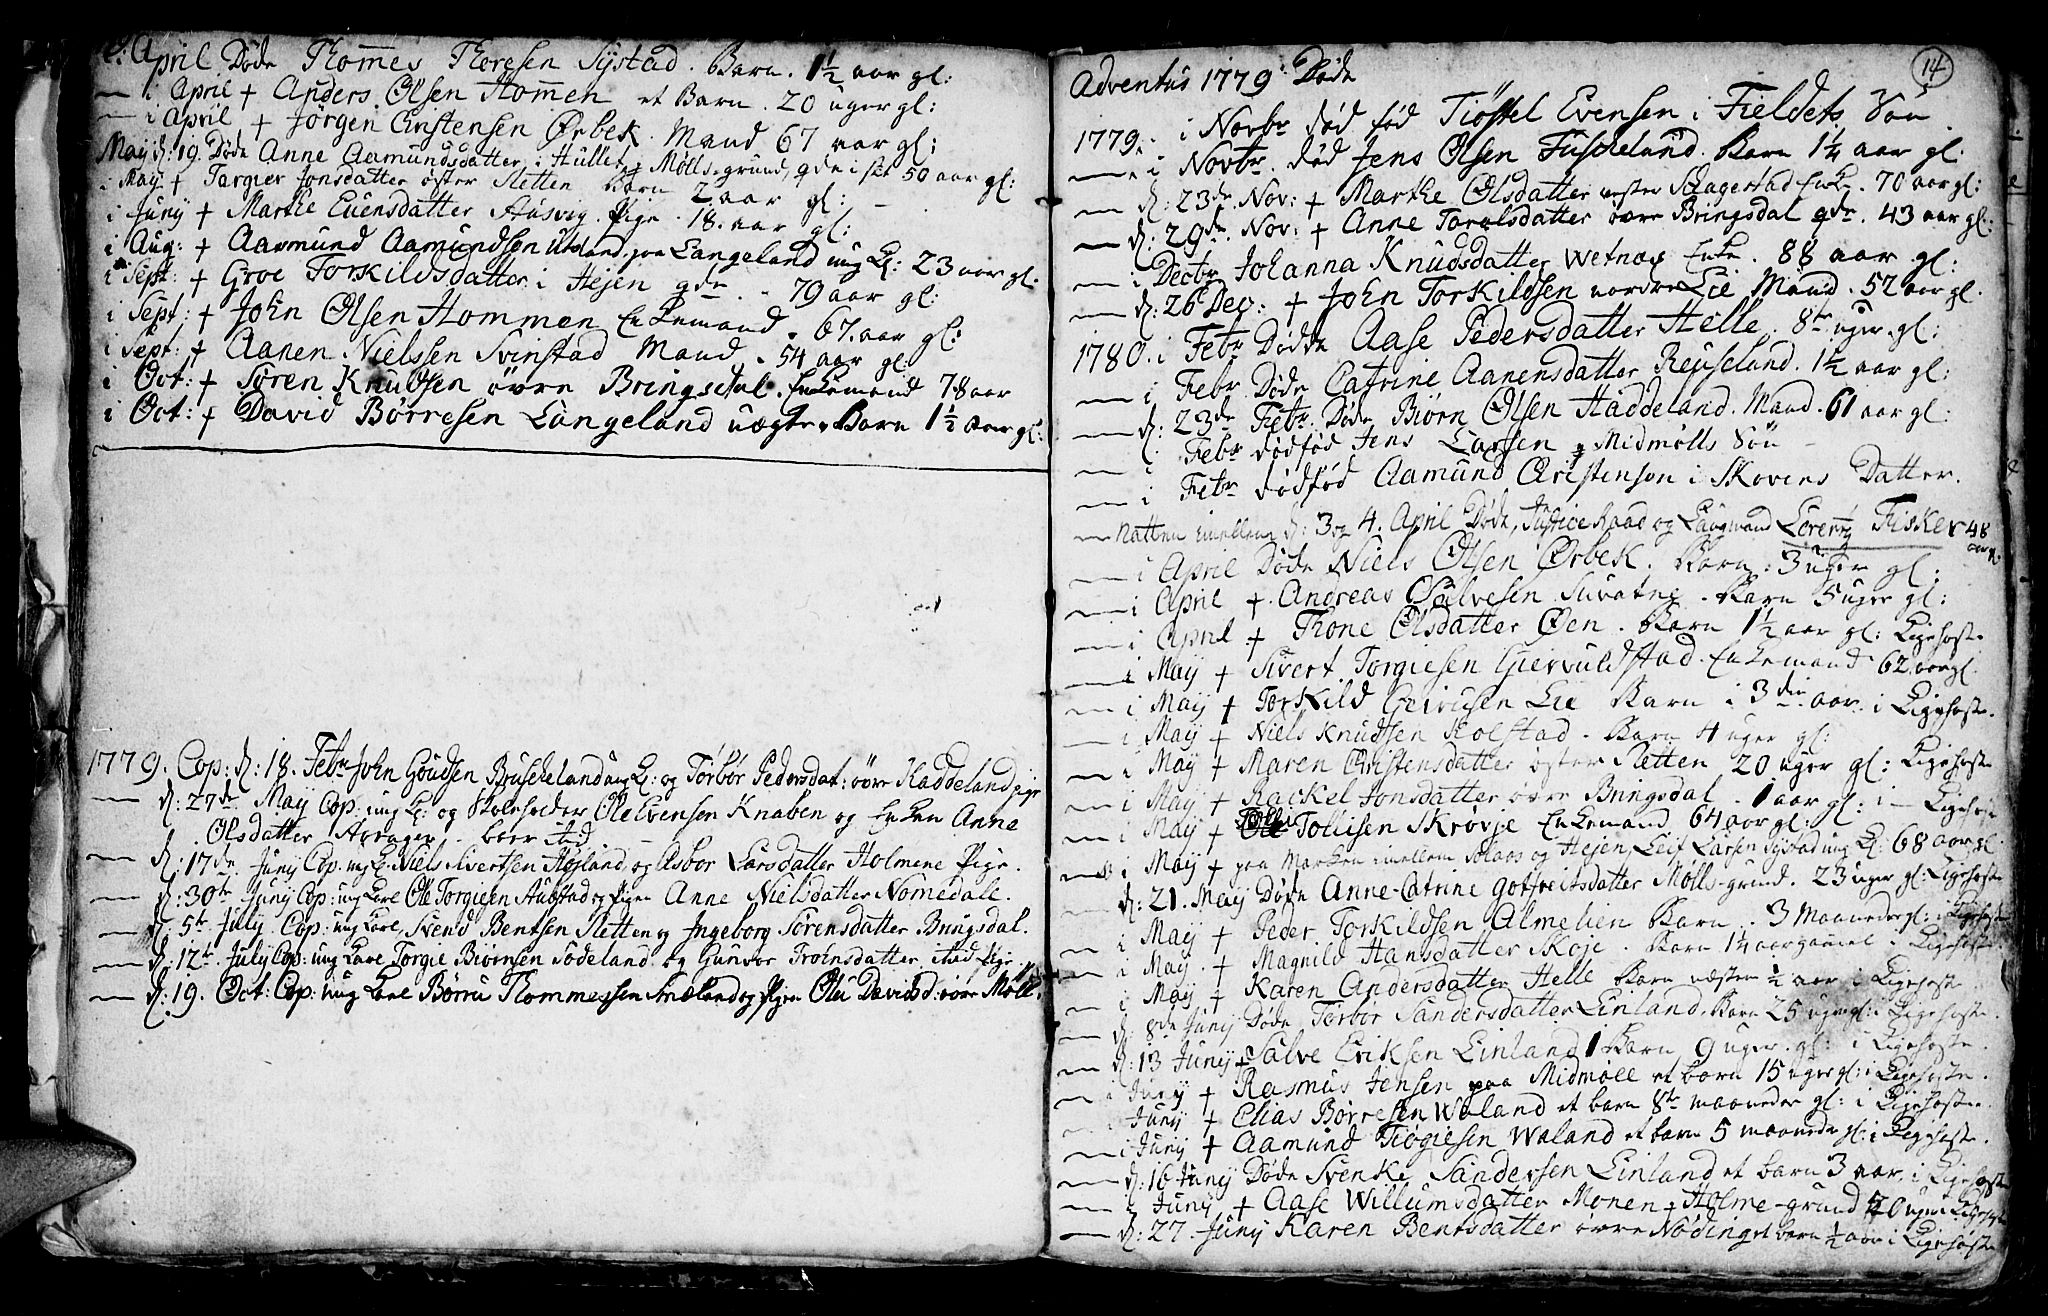 April Døde Thommes Thoresen Systad. Barn. 1½ aar gl:
— i April + Anders Olsen Hommen et Barn. 20 uger gl:
— i April + Jørgen Christensen Ørbek. Mand 67 aar gl:
May d: 19. Døde Anne Aamundsdatter i Hullet, Mølls-grund, gde i sit 50 aar gl:
i May + Targier Jonsdatter øster Sletten Barn 2 aar gl:
i Juny + Marthe Evensdatter Ausvig. Pige. 18. aar gl:
i Aug: + Aamund Aamundsen paa Langeland ung K: 23 aar gl:
i Sept: + Groe Torkildsdatter i Hejen gde. 79 aar gl:
i Sept: + John Olsen Hommen Enkemand. 67. aar gl:
i Sept: + Aanen Nielssen Svinstad Mand. 54 aar gl:
i Oct: + Søren Knudsen øvre Bringsdal. Enkemand 78 aar
i Oct: + David Børresen Langeland uægte Barn 1½ aar gl:
1779. Cop: d: 18. Febr John Goudsen Buscheland ung K: og Torbør Pedersdat: øvre Haddeland pige
— d: 27de May Cop: ung K: og Skoleholder Ole Evensen Knaben og Enken Anne
Olsdatter
— d: 17de Juny Cop: ung K: Niels Sivertsen Højland og Asbor Larsdatter Holmene Pige.
— d: 30te Juny Cop: ung Karl Ole Torgiesen Aubstad og Pigen Anne Nielsdatter Nomedale.
— d: 5te July Cop: ung Karl Svend Bentsen Sletten og Ingeborg Sørensdatter Bringsdal.
— d: 12te July Cop: ung Karl Torgie Biørnsen Sodeland og Gunvor Troensdatter ibid Pige.
— d: 19. Oct: Cop: ung Karl Børru Thommessen og Pigen Olu Davidsd: øvre Møll.
14
Adventus 1779. Døde
1779. i Novbr død fød Tiøstel Evensen i Fieldets Søn
— i Novbr. død Jens Olsen Fuscheland. Barn 1¼ aar gl.
— d: 23de Nov: + Marthe Olsdatter vester Skagestad Enke. 70 aar gl:
— d: 29de Nov: + Anne Taralsdatter øvre Bringsdal gde. 43 aar gl:
— i Decbr Johanna Knudsdatter Wetnes Enke. 88 aar gl:
— d: 26 Dec: + John Torkildsen nordre Lie Mand. 52 aar gl.
1780. i Febr Døde Aase Pedersdatter Helle. 8te uger gl:
— i Febr Døde Catrine Aanensdatter Repseland. 1½ aar gl:
— d: 23de Febr. Døde Biørn Olsen Haddeland. Mand. 61 aar gl:
— i Febr dødfød Jens Larsen Midmølls Søn
— i Febr dødfød Aamund Christensen i Skovens Datter.
— Natten imellem d: 3 og 4. April Døde, Justice Raad og Laugmand Lorentz Fisker 48 aar gl.
— i April Døde Niels Olsen Ørbek. Barn. 3 uger gl:
— i April + Andreas Salvesen Suvatne. Barn 5 uger gl:
— i April + Thone Olsdatter Øen. Barn 1½ aar gl: Kigehoste
— i May + Sivert Torgiesen Giervuldstad. Enkemand 62 aar gl.
— i May + Torkild Lie Barn i 3die aar i Kigehoste.
— i May + Niels Knudsen Kolstad. Barn 4 uger gl:
— i May + Maren Christensdatter øster Sletten 20 uger gl: Kigehoste
— i May + Rackel Jonsdatter øvre Bringsdal. 1 aar gl: i Kigehoste
— i May + Tolliv Tollifsen Skrøvje Enkemand 64 aar gl:
— i May + paa Marken imellem Aaas og Hejen Leif Larsen Systad ung K: 68 aar gl.
— d: 21. May Døde Anne-Catrine Gotfreitsdatter Mølls-grund. 23 uger gl: Kigehoste
— i May + Peder Torkildsen Almelien Barn. 3 Maaneder gl: i Kigehoste
— i May + Magnild Hansdatter Skoje. Barn 14 aar gamel i Kigehoste
— i May + Karen Andersdatter Helle Barn næsten ½ aar i Kigehoste
— d: 8de Juny Døde Torbor Sandersdatter Einland. Barn 25 uger gl: i Kigehoste.
— d: 13 Juny + Salve Eriksen Einland 1 Barn 9 uger gl: i Kigehoste.
— i Juny + Rasmus Jensen paa Midmøll et barn 15 uger gl: i Kigehoste.
— i Juny + Elias Børresen Waland et barn 8te maaneder gl: i Kigehoste
— i Juny + Aamund Tiøgiesen Waland et barn 5 maaneder gl: i Kigehoste.
— d: 16 Juny Døde Svenke Sandersen Einland et barn 3 aar. i Kigehoste
— i Juny + Aase Willumsdatter Monen Holme-grund 20 uger Kigehoste
— d: 27. Juny Karen Bentsdatter øvre Nøding et barn ½ aar i Kigehoste